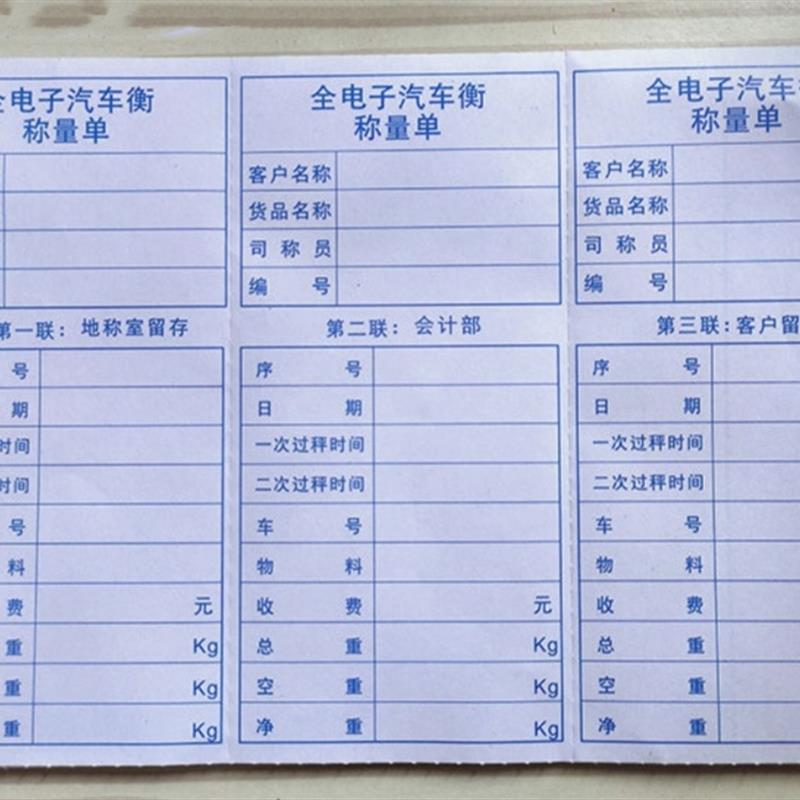 全电子汽车衡
称量单
第一联：地称室留存
号
期
时间
时间
号
料
费 元
重 Kg
重 Kg
重 Kg
全电子汽车衡
称量单
客户名称
货品名称
司称员
编号
第二联：会计部
序号
日期
一次过秤时间
二次过秤时间
车号
物料
收费 元
总重 Kg
空重 Kg
净重 Kg
全电子汽车衡
称量单
客户名称
货品名称
司称员
编号
第三联：客户留
序号
日期
一次过秤时间
二次过秤时间
车号
物料
收费
总重
空重
净重